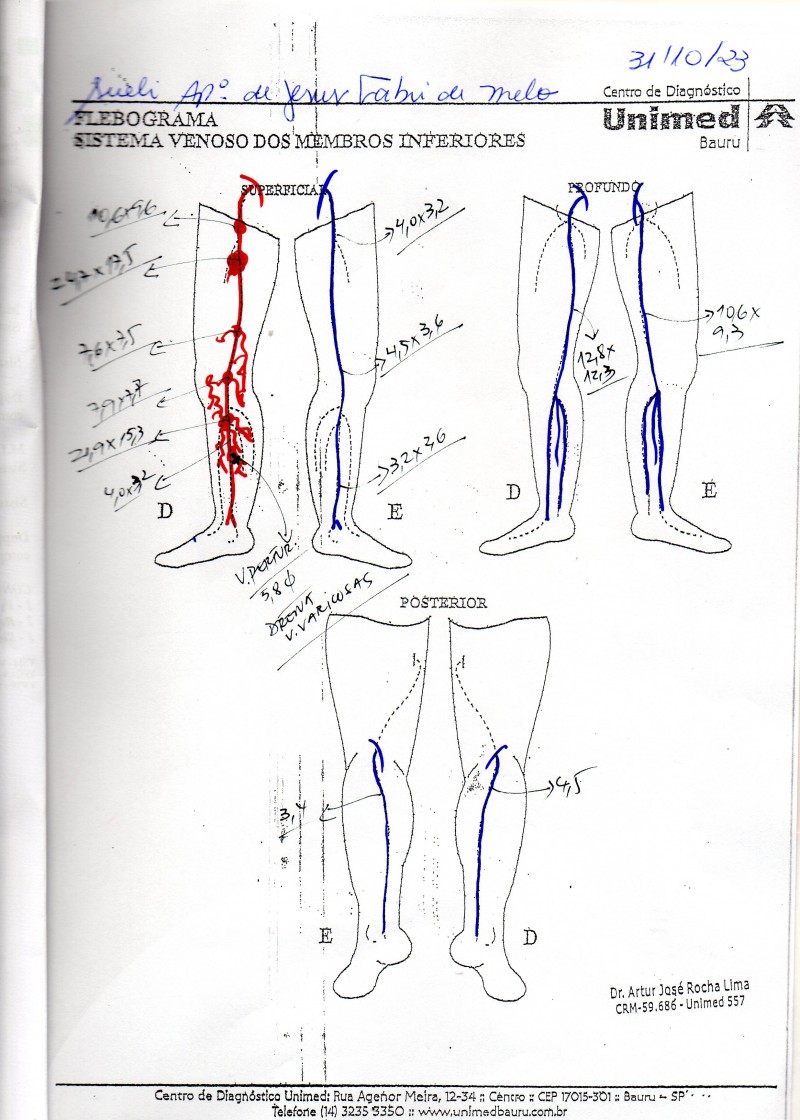 31/10/23
Sueli Apª. de Jesus Fabri de Melo
Centro de Diagnóstico
Unimed
Bauru
FLEBOGRAMA
SISTEMA VENOSO DOS MEMBROS INFERIORES
SUPERFICIAL
PROFUNDO
10,6x9,6
4,0x3,2
17,5
7,6x7,5
4,5x3,6
10,6x
9,3
12,8x
12,3
7,9x7,7
15,3
4,0x3,2
3,2x2,6
D
E
D
E
V. PERFUR.
5,8 ϕ
DRENA
V. VARICOSAS
POSTERIOR
3,4
4,5
E
D
Dr. Artur José Rocha Lima
CRM-59.686 - Unimed 557
Centro de Diagnóstico Unimed: Rua Agenor Meira, 12-34 :: Centro :: CEP 17015-301 :: Bauru - SP
Telefone (14) 3235 3350 :: www.unimedbauru.com.br